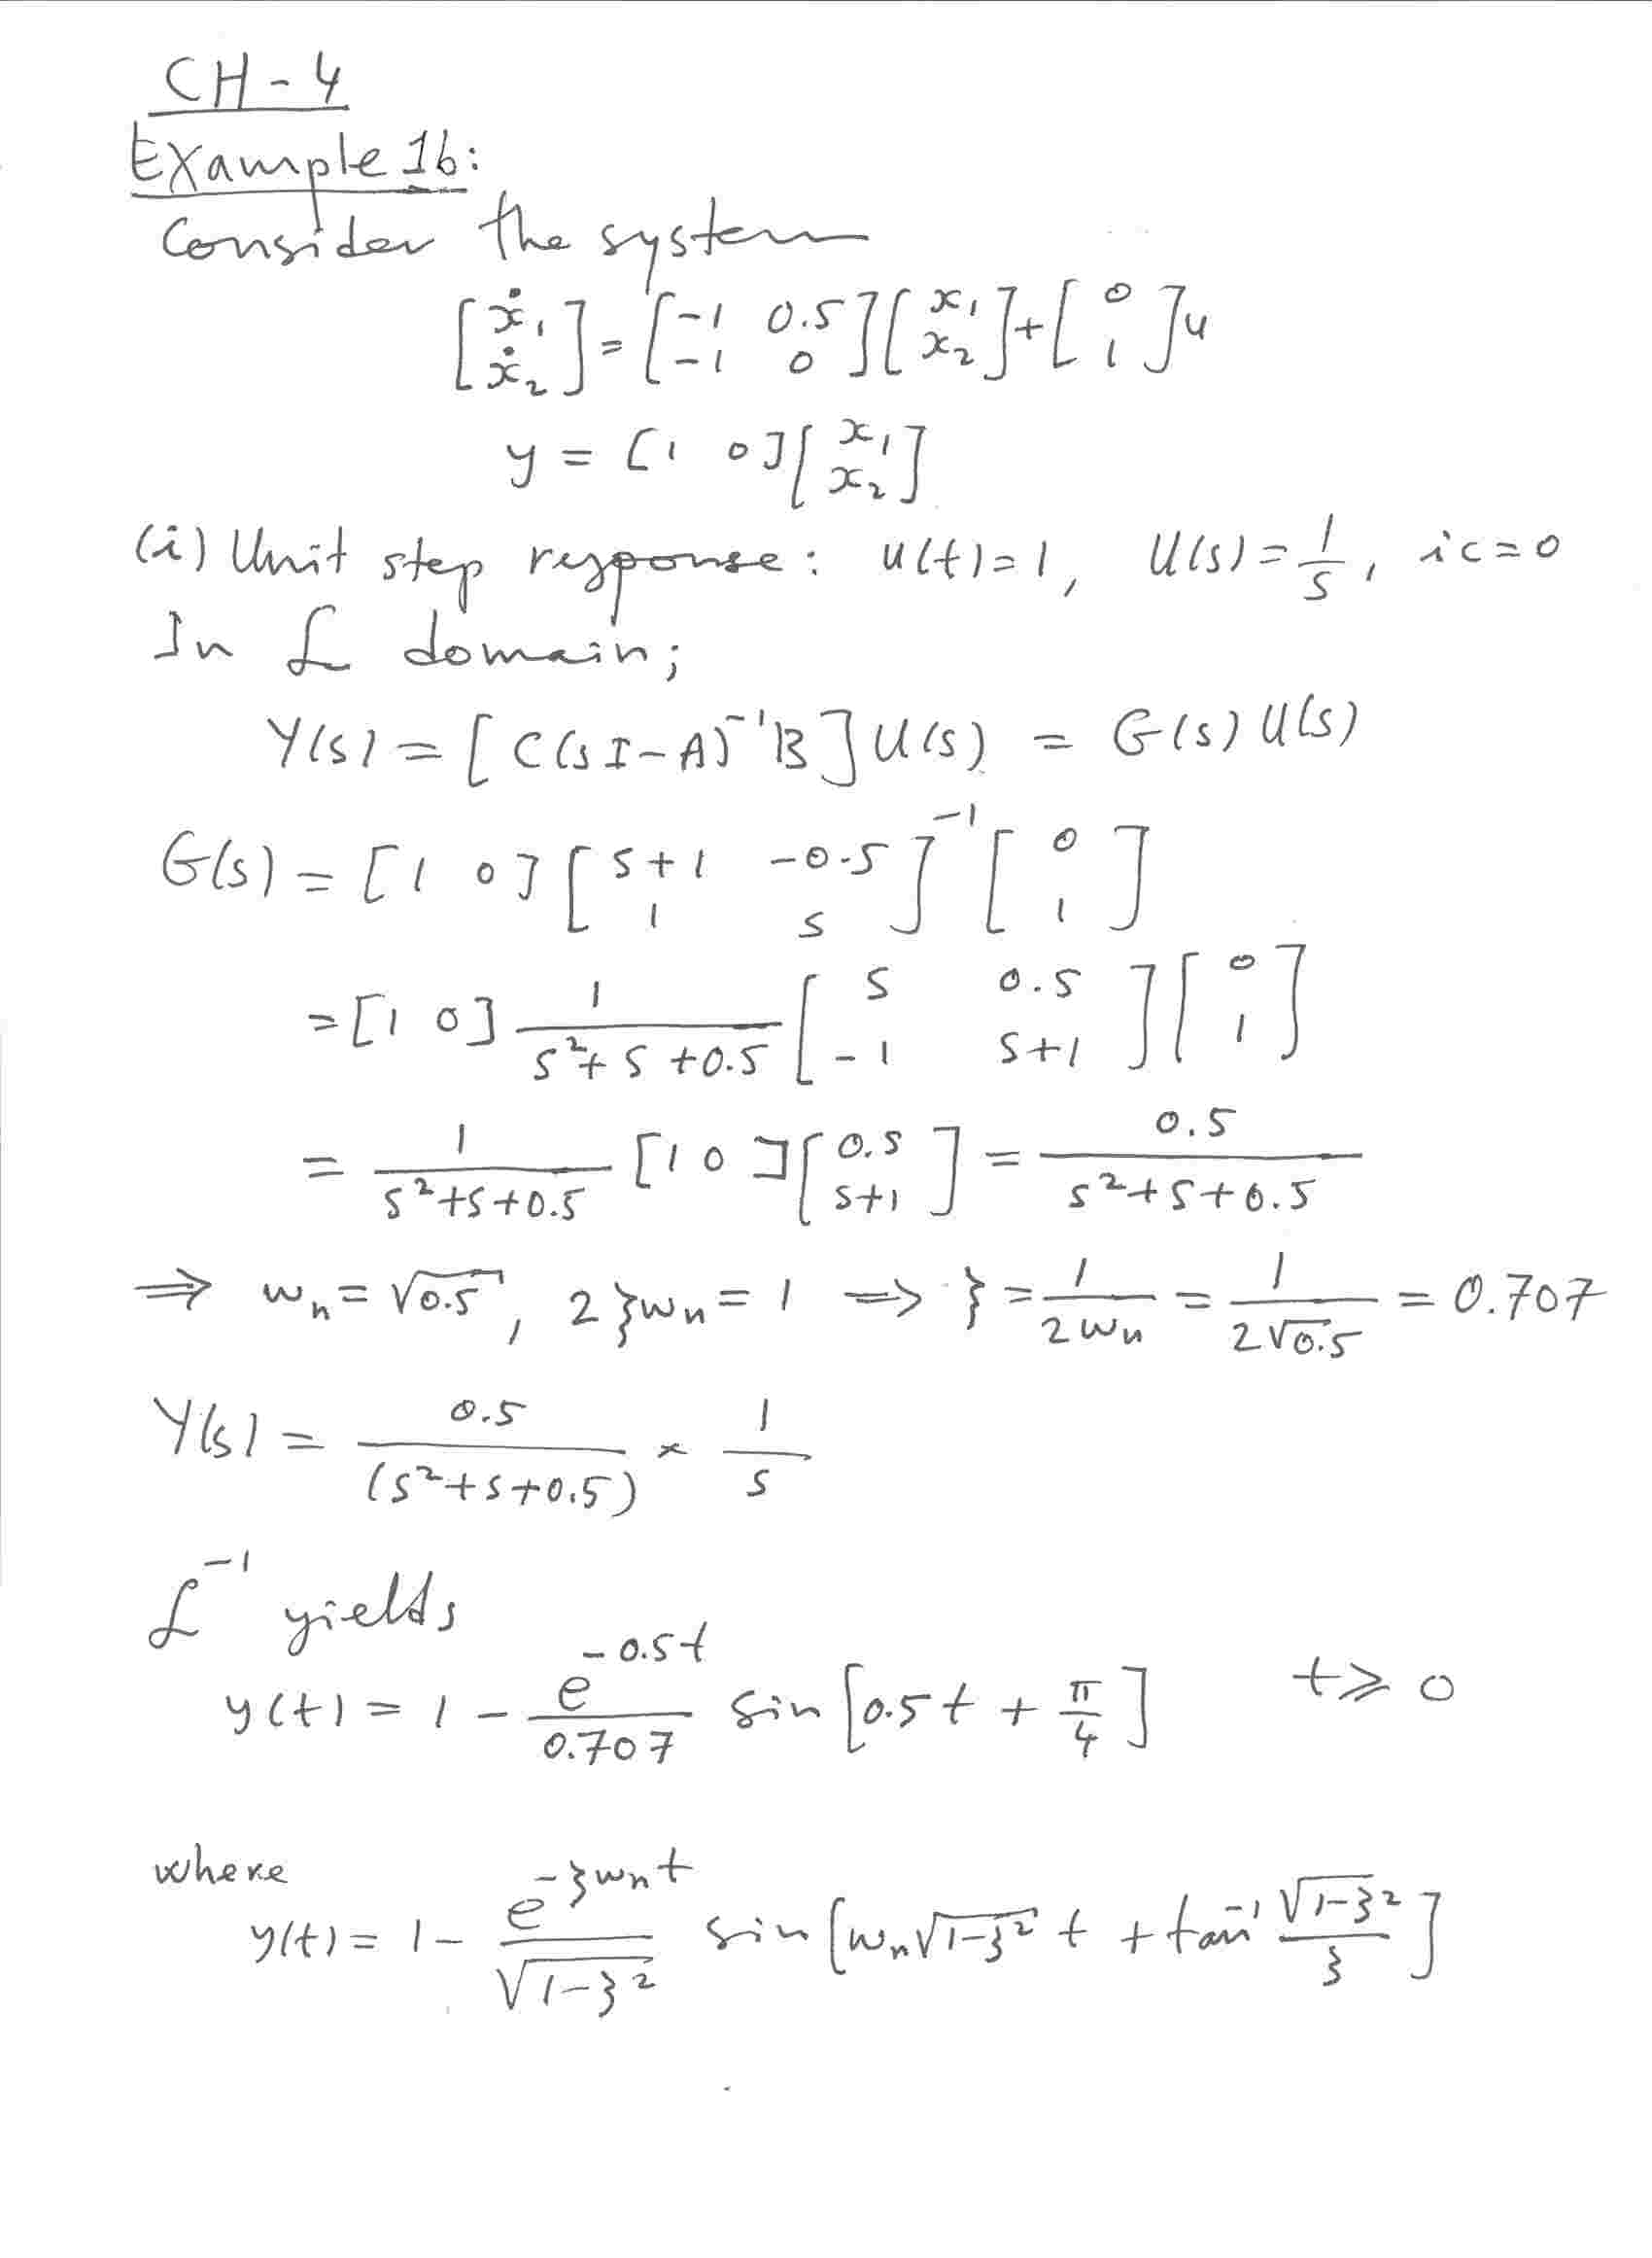 CH-4
Example 1b:
Consider the system
[ẋ₁ ẋ₂] = [-1 0.5; -1 0] [x₁ x₂] + [0 1] u
y = [1 0] [x₁ x₂]
(i) Unit step response: u(t)=1, U(s)=1/s, ic=0
In ℒ domain;
Y(s) = [C(sI-A)⁻¹B] U(s) = G(s) U(s)
G(s) = [1 0] [s+1 -0.5; 1 s]⁻¹ [0 1]
= [1 0] 1/(s²+s+0.5) [s 0.5; -1 s+1] [0 1]
= 1/(s²+s+0.5) [1 0] [0.5 s+1] = 0.5/(s²+s+0.5)
⇒ wₙ = √0.5, 2ξwₙ = 1 ⇒ ξ = 1/(2wₙ) = 1/(2√0.5) = 0.707
Y(s) = 0.5/(s²+s+0.5) × 1/s
ℒ⁻¹ yields
y(t) = 1 - e^(-0.5t)/0.707 sin[0.5t + π/4] t ≥ 0
where
y(t) = 1 - e^(-ξwₙt)/√(1-ξ²) sin[wₙ√(1-ξ²) t + tan⁻¹ √(1-ξ²)/ξ]